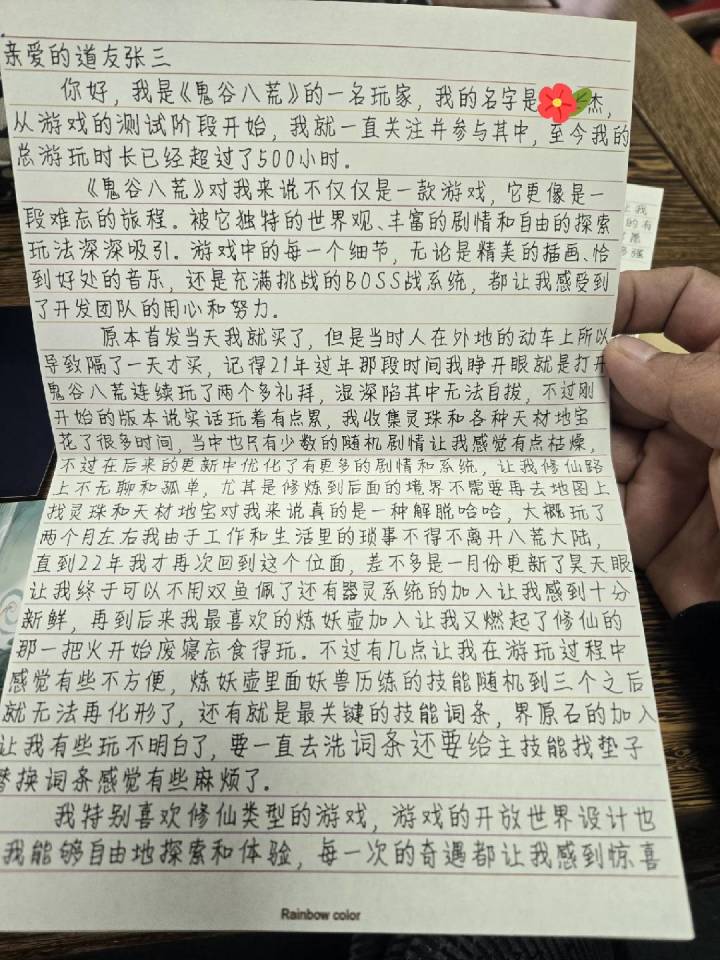 亲爱的道友张三
你好，我是《鬼谷八荒》的一名玩家，我的名字是 杰，
从游戏的测试阶段开始，我就一直关注并参与其中，至今我的
总游玩时长已经超过了500小时.
《鬼谷八荒》对我来说不仅仅是一款游戏，它更像是一
段难忘的旅程.被它独特的世界观、丰富的剧情和自由的探索
玩法深深吸引.游戏中的每一个细节，无论是精美的插画、恰
到好处的音乐，还是充满挑战的BOSS战系统，都让我感受到
了开发团队的用心和努力.
原本首发当天我就买了，但是当时人在外地的动车上所以
导致隔了一天才买，记得21年过年那段时间我睁开眼就是打开
鬼谷八荒连续玩了两个多礼拜，深陷其中无法自拔，不过刚
开始的版本说实话玩着有点累，我收集灵珠和各种天材地宝
花了很多时间，当中也只有少数的随机剧情让我感觉有点枯燥，
不过在后来的更新中优化了有更多的剧情和系统，让我修仙路
上不无聊和孤单，尤其是修炼到后面的境界不需要再去地图上
找灵珠和天材地宝对我来说真的是一种解脱哈哈，大概玩了
两个月左右我由于工作和生活里的琐事不得不离开八荒大陆，
直到22年我才再次回到这个位面，差不多是一月份更新了昊天眼
让我终于可以不用双鱼佩了还有器灵系统的加入让我感到十分
新鲜，再到后来我最喜欢的炼妖壶加入让我又燃起了修仙的
那一把火开始废寝忘食得玩.不过有几点让我在游玩过程中
感觉有些不方便，炼妖壶里面妖兽历练的技能随机到三个之后
就无法再化形了，还有就是最关键的技能词条，界原石的加入
让我有些玩不明白了，要一直去洗词条还要给主技能找垫子
替换词条感觉有些麻烦了.
我特别喜欢修仙类型的游戏，游戏的开放世界设计也
我能够自由地探索和体验，每一次的奇遇都让我感到惊喜
Rainbow color